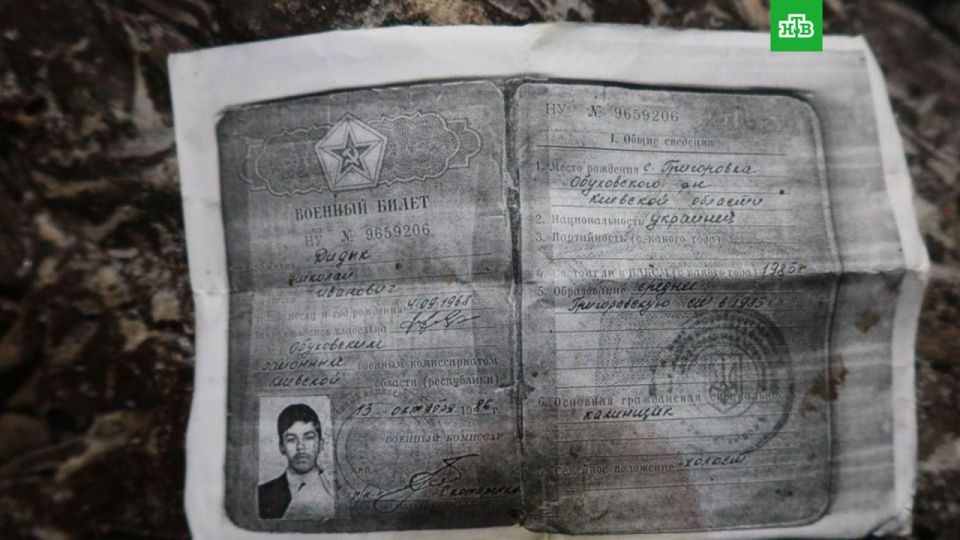 НТВ
ВОЕННЫЙ БИЛЕТ
НУ № 9659206
Дидык
Николай
Иванович
4.09.1968
владельца
Обуховским
районным военным комиссариатом
Киевской области (республики)
13 октября 1986 г.
ВОЕННЫЙ КОМИССАР
НУ № 9659206
I. Общие сведения
1. Место рождения с. Григоровка
Обуховского
Киевской области
2. Национальность украинец
3. Партийность (с какого года)
4. Состоит ли в ВЛКСМ (с какого года) 1985г
5. Образование среднее
Григоровскую сш в 1985г
6. Основная гражданская специальность
7. Семейное положение холост